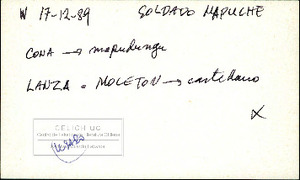 W 17-12-89 SOLDADO MAPUCHE
CONA → mapudungu
LANZA o MOLETON → castellano
X
CELICH UC